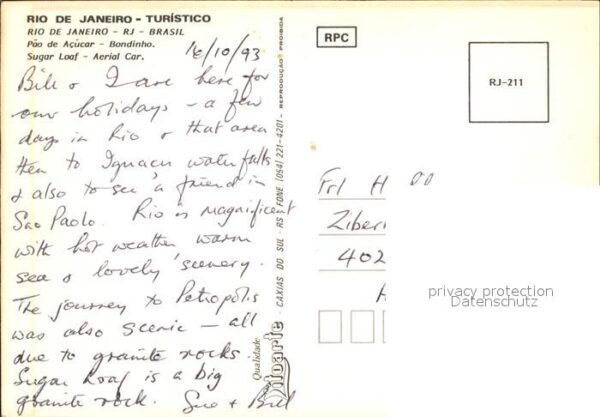 RIO DE JANEIRO - TURÍSTICO
RIO DE JANEIRO - RJ - BRASIL
Pão de Açúcar - Bondinho.
Sugar Loaf - Aerial Car.
16/10/93
Bill & I are here for
our holidays - a few
days in Rio & that area
then to Iguacu waterfalls
& also to see a friend in
Sao Paolo. Rio is magnificent
with hot weather warm
sea & lovely scenery.
The journey to Petropolis
was also scenic - all
due to granite rocks.
Sugar Loaf is a big
granite rock. Sue & Bill
Qualidade
CAXIAS DO SUL - RS - FONE (054) 221-4201 - REPRODUÇÃO PROIBIDA
RPC
RJ-211
Frl H
Ziber
402
H
privacy protection
Datenschutz